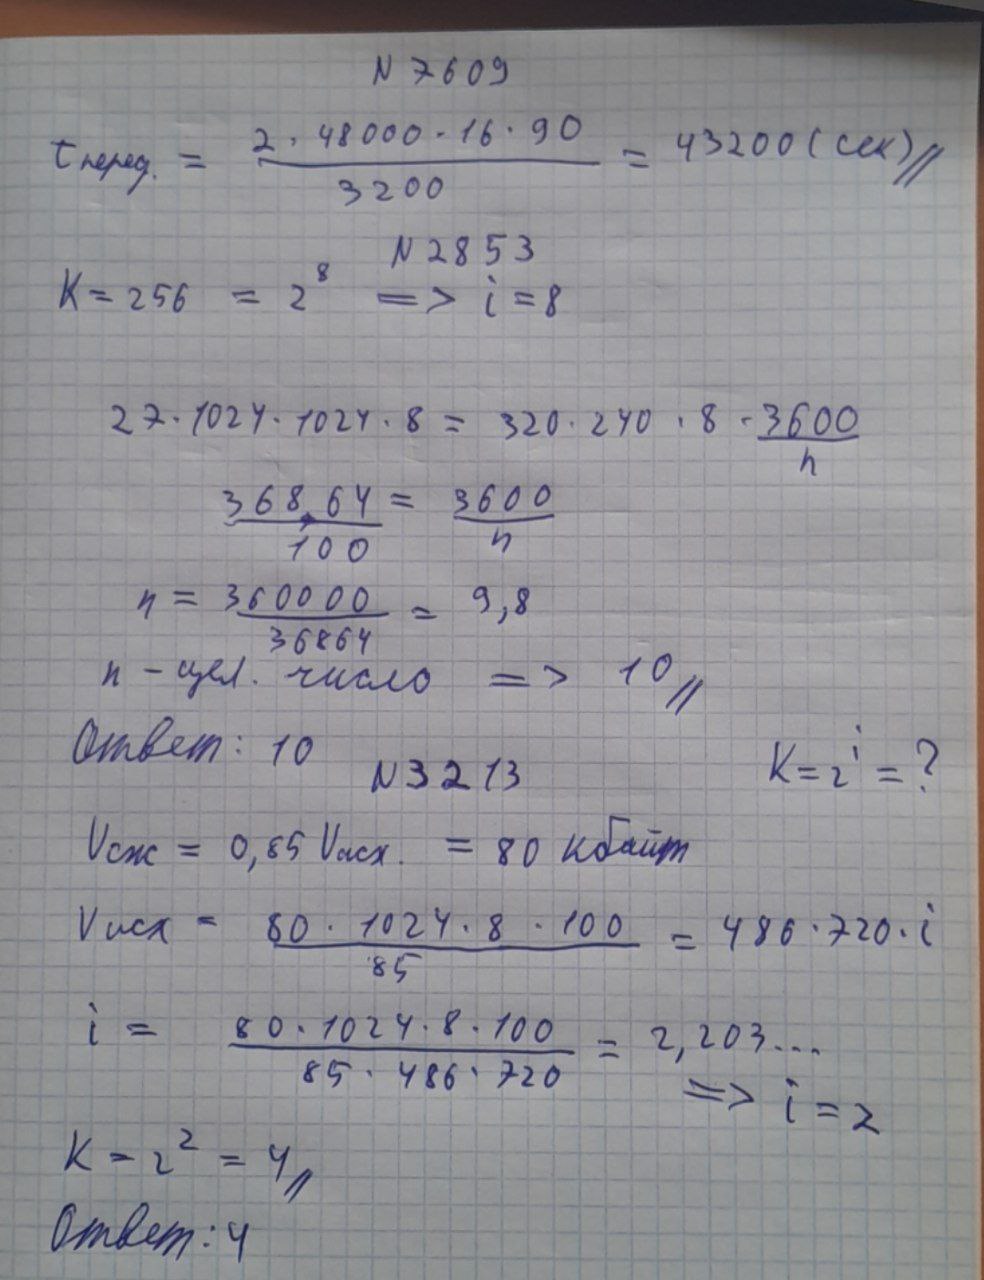 N 7609
tперед. = 2 · 48000 · 16 · 90 / 3200 = 43200 (сек)//
N 2853
K = 256 = 2^8 => i = 8
27 · 1024 · 1024 · 8 = 320 · 240 · 8 · 3600 / n
368,64 / 100 = 3600 / n
n = 360000 / 36864 = 9,8
n – цел. число => 10//
Ответ: 10
N 3213
K = 2^i = ?
Vсж = 0,85 Vисх. = 80 кбайт
Vисх = 80 · 1024 · 8 · 100 / 85 = 486 · 720 · i
i = 80 · 1024 · 8 · 100 / 85 · 486 · 720 = 2,203...
=> i = 2
K = 2^2 = 4//
Ответ: 4